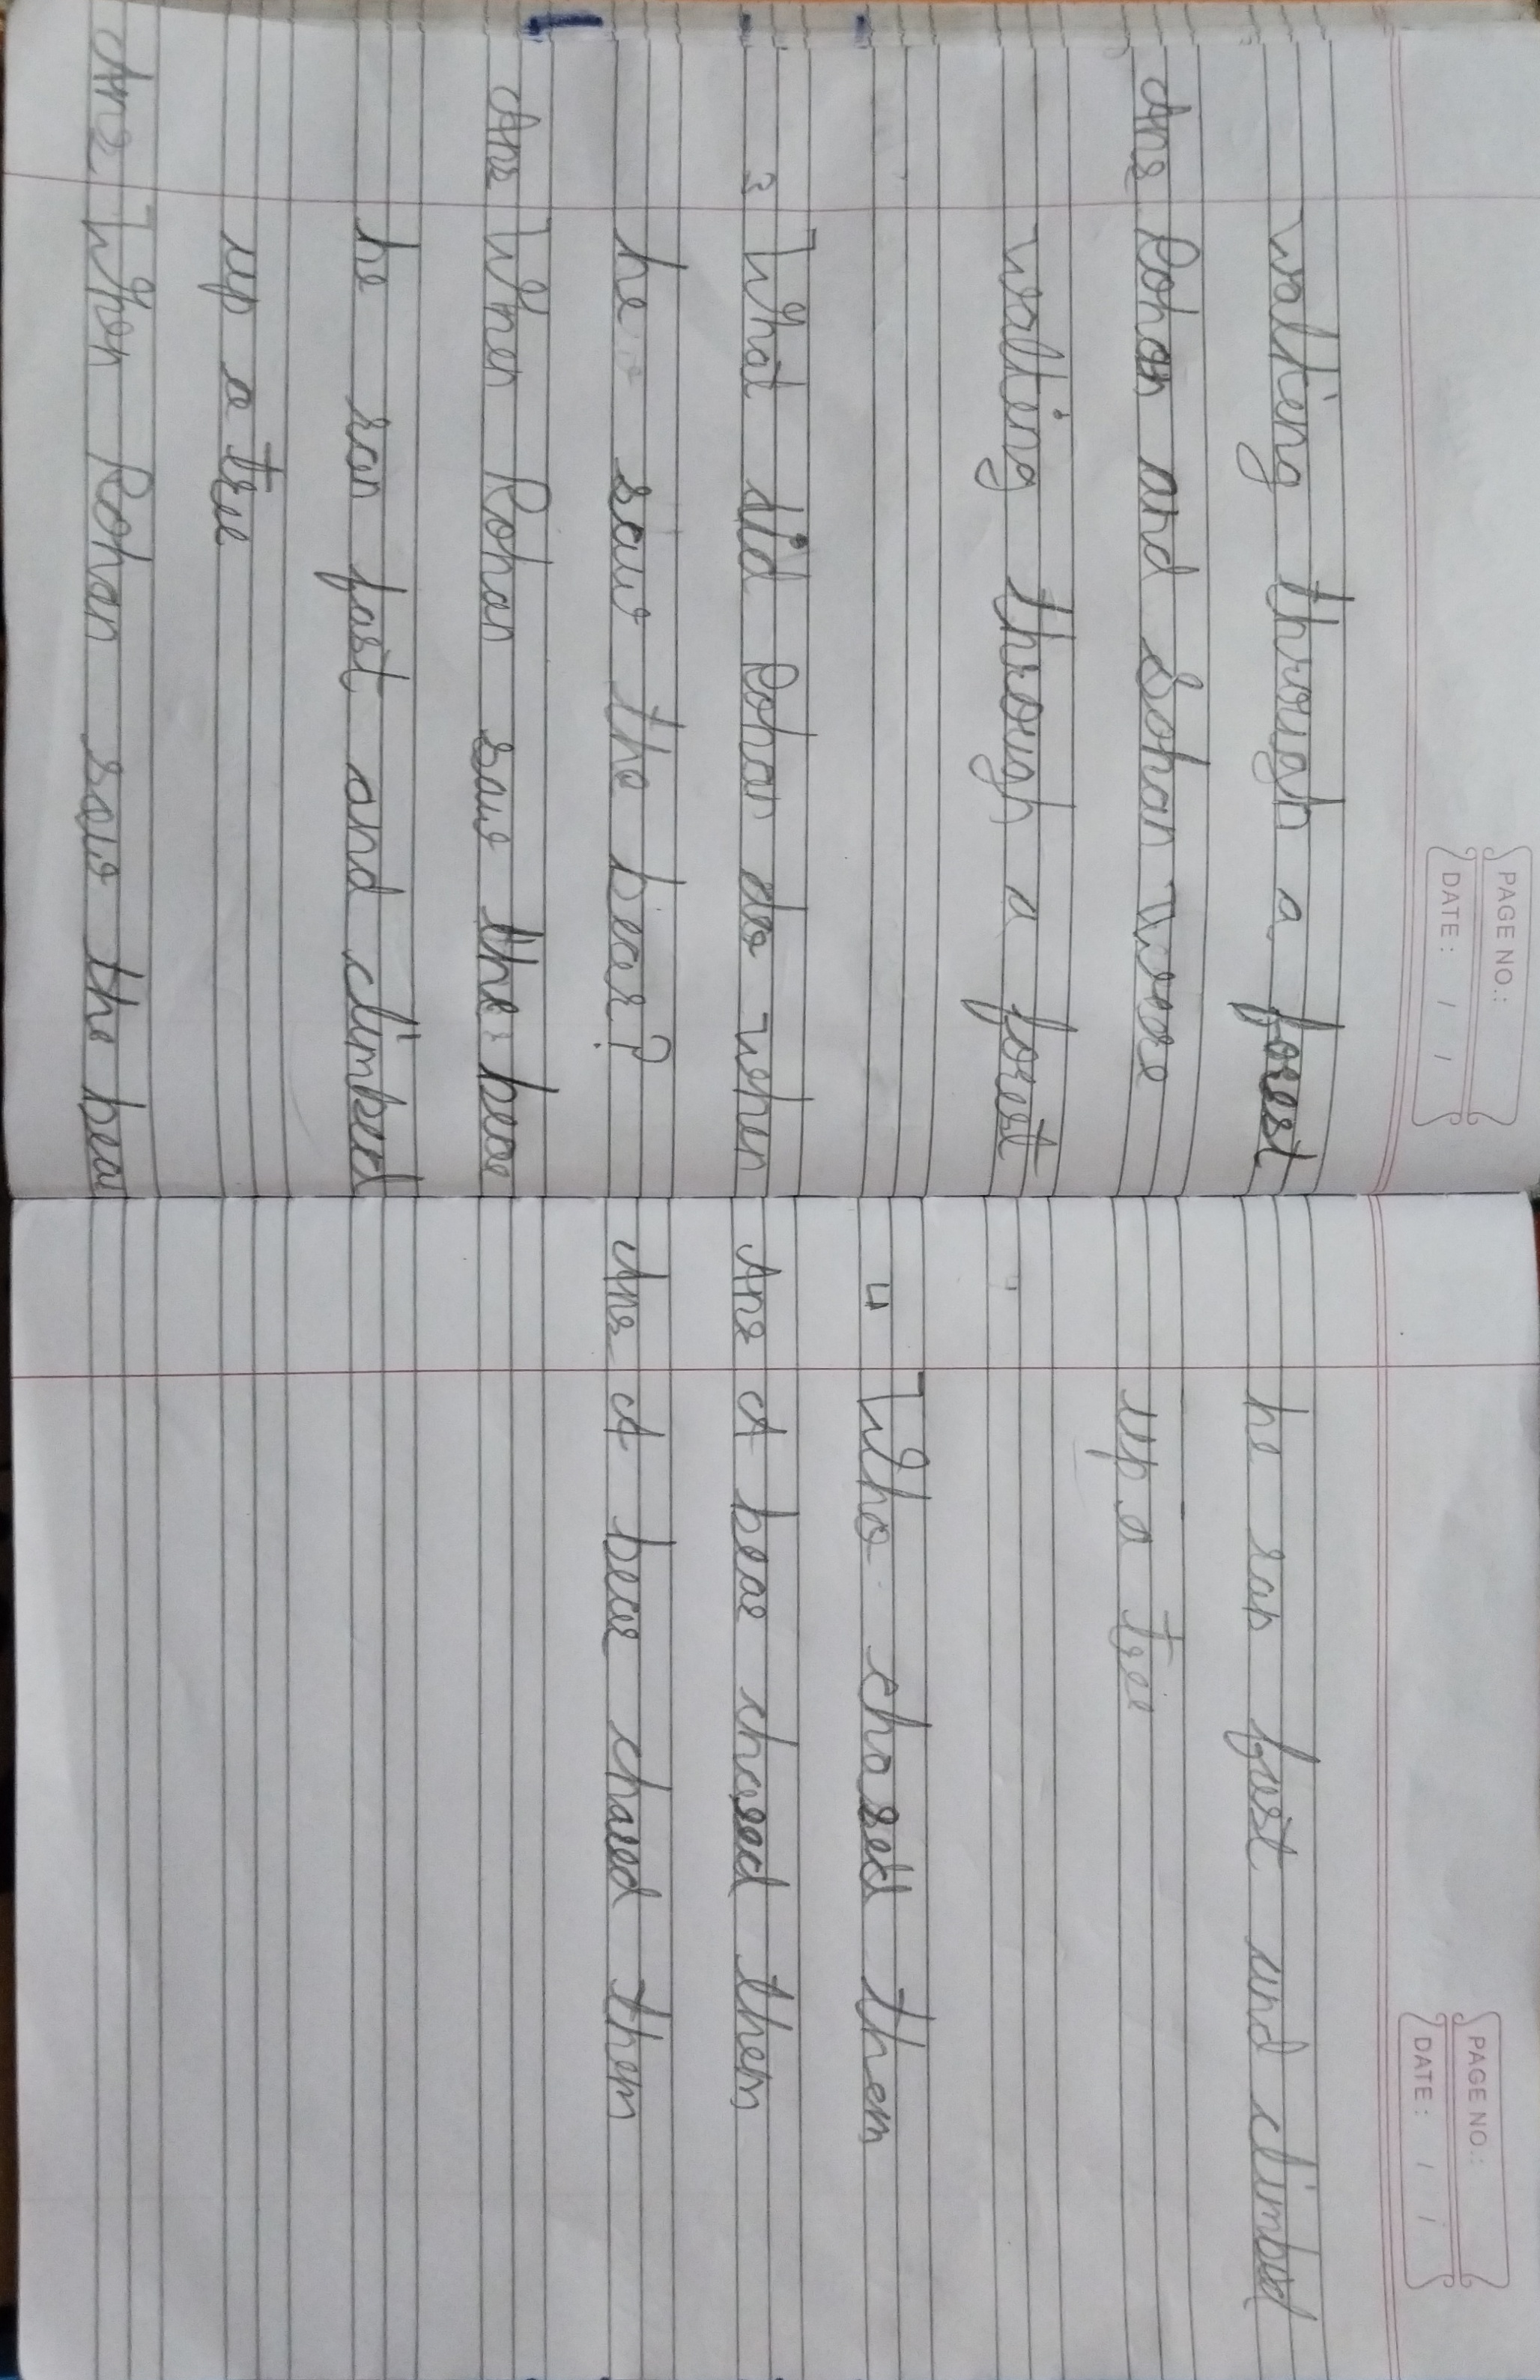 PAGE NO.:
DATE: / /
walking through a forest
Ans Rohan and Sohan were
walking through a forest
3 What did Rohan do when
he saw the bear?
Ans When Rohan saw the bear
he ran fast and climbed
up a tree
Ans When Rohan saw the bear
PAGE NO.:
DATE: / /
he ran fast and climbed
up a tree
4 Who chased them
Ans A bear chased them
Ans A bear chased them